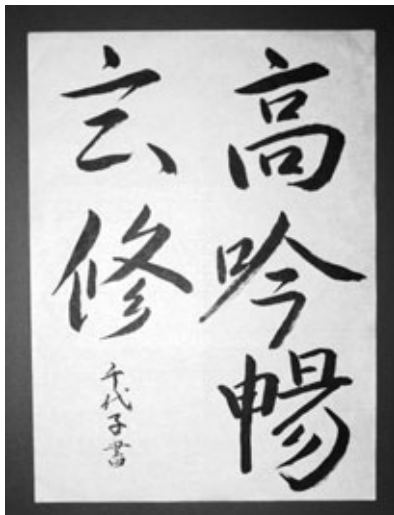 高吟暢
玄修
千代子書